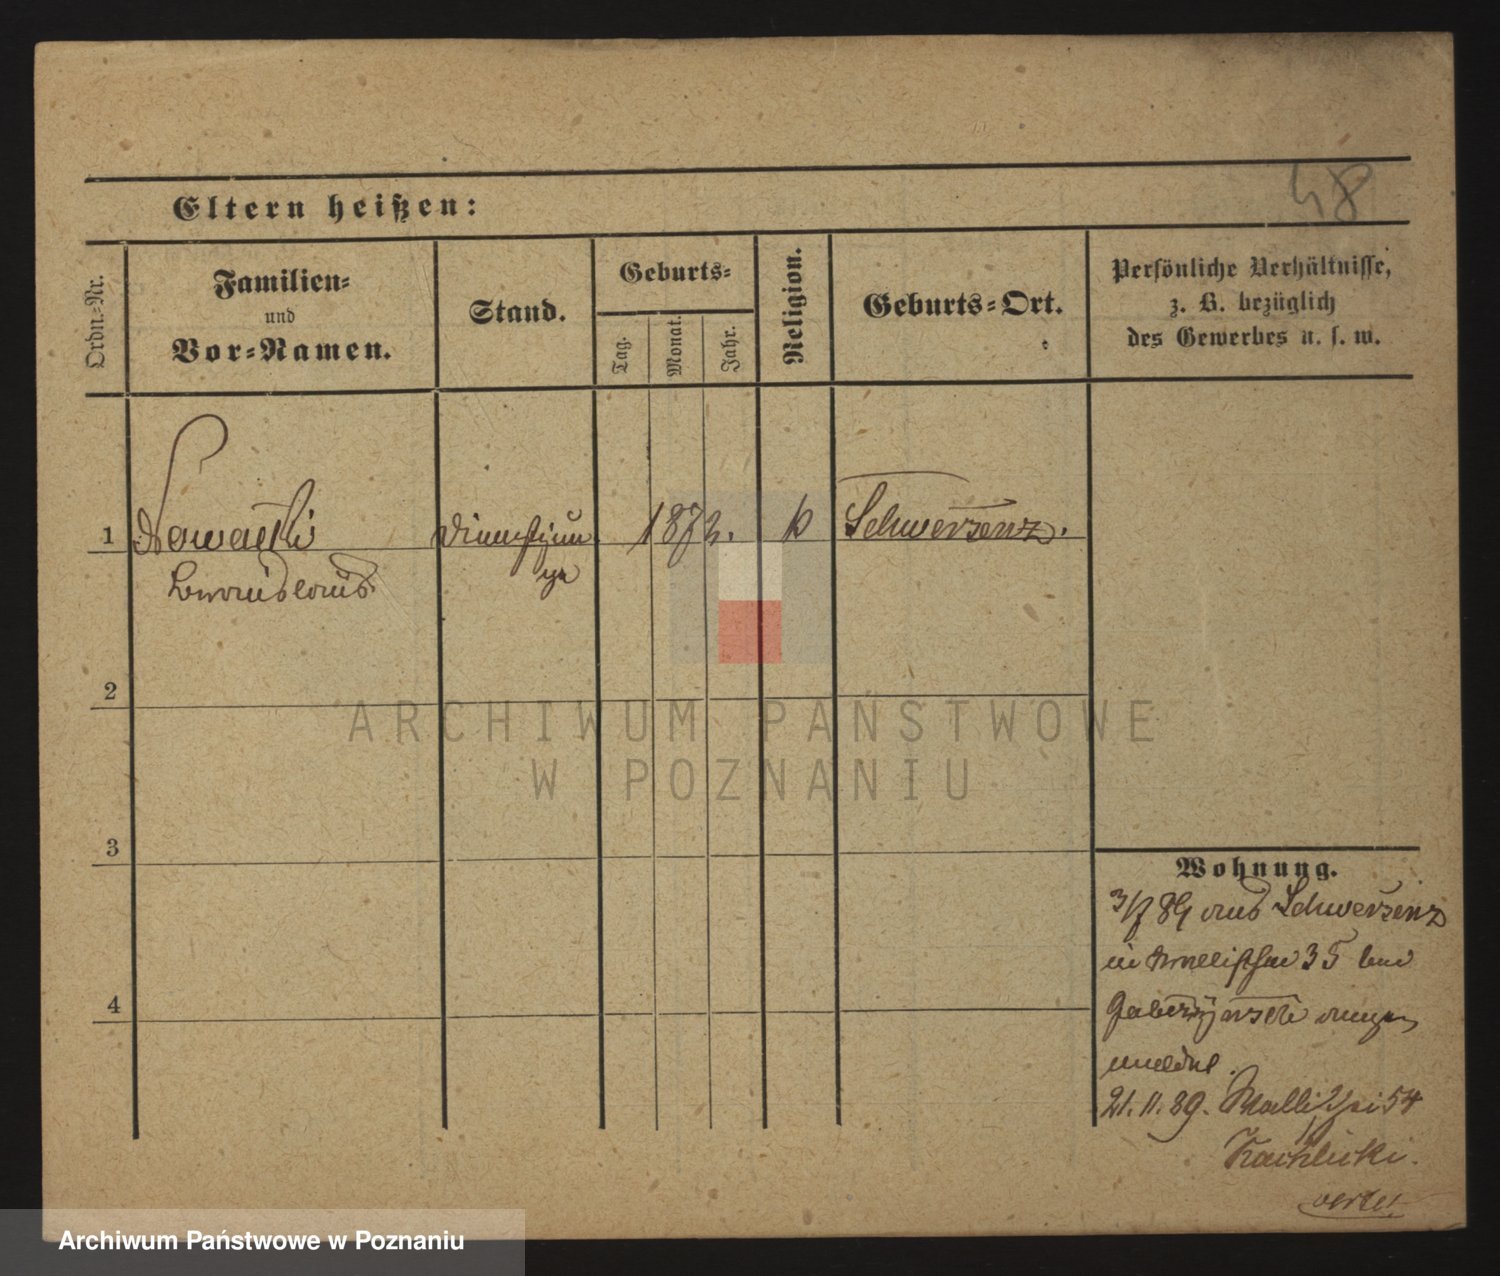 48
Eltern heißen:
Ordn.-Nr.
Familien-
und
Vor-Namen.
Stand.
Geburts-
Tag.
Monat.
Jahr.
Religion.
Geburts-Ort.
Persönliche Verhältnisse,
z. B. bezüglich
des Gewerbes u. s. w.
1
Nowacki
1872.
k
Schwersenz.
2
3
4
ARCHIWUM PAŃSTWOWE
W POZNANIU
Wohnung.
3/7 89 aus Schwersenz
in Wallischei 35 bei
21. 11. 89. Wallischei 54
verte
Archiwum Państwowe w Poznaniu